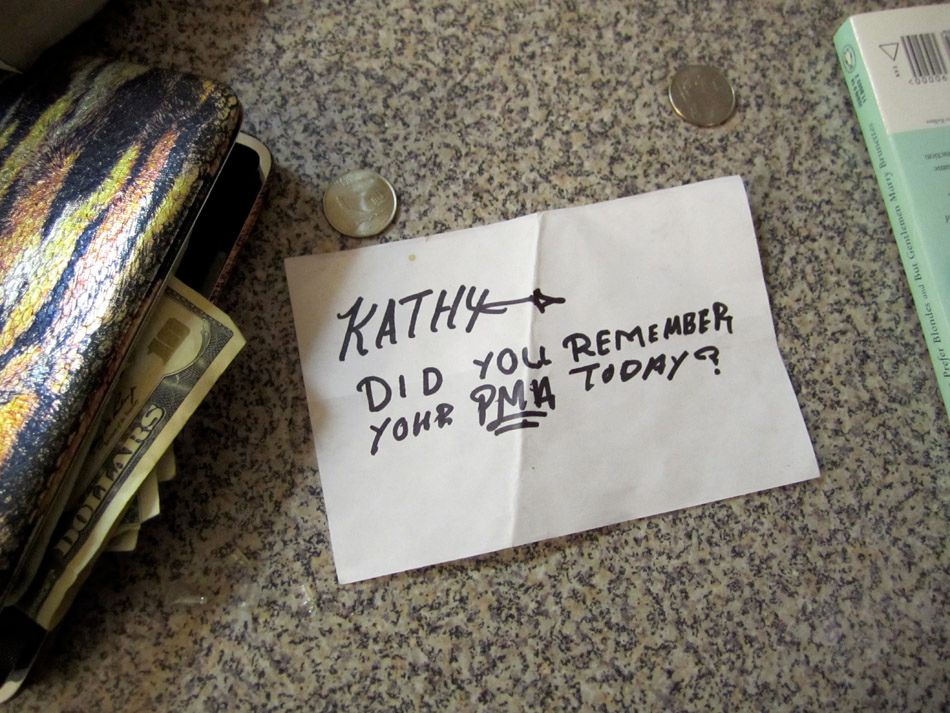 KATHY
DID YOU REMEMBER
YOUR PMA TODAY?
DOLLARS
Prefer Blondes and But Gentlemen Marry Brunettes